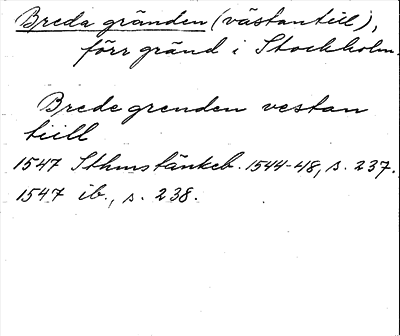 Breda gränden (västantill),
förr gränd i Stockholm.
Brede grenden vestan
tiill
1547 Sthms tänkeb. 1544-48, s. 237.
1547 ib., s. 238.